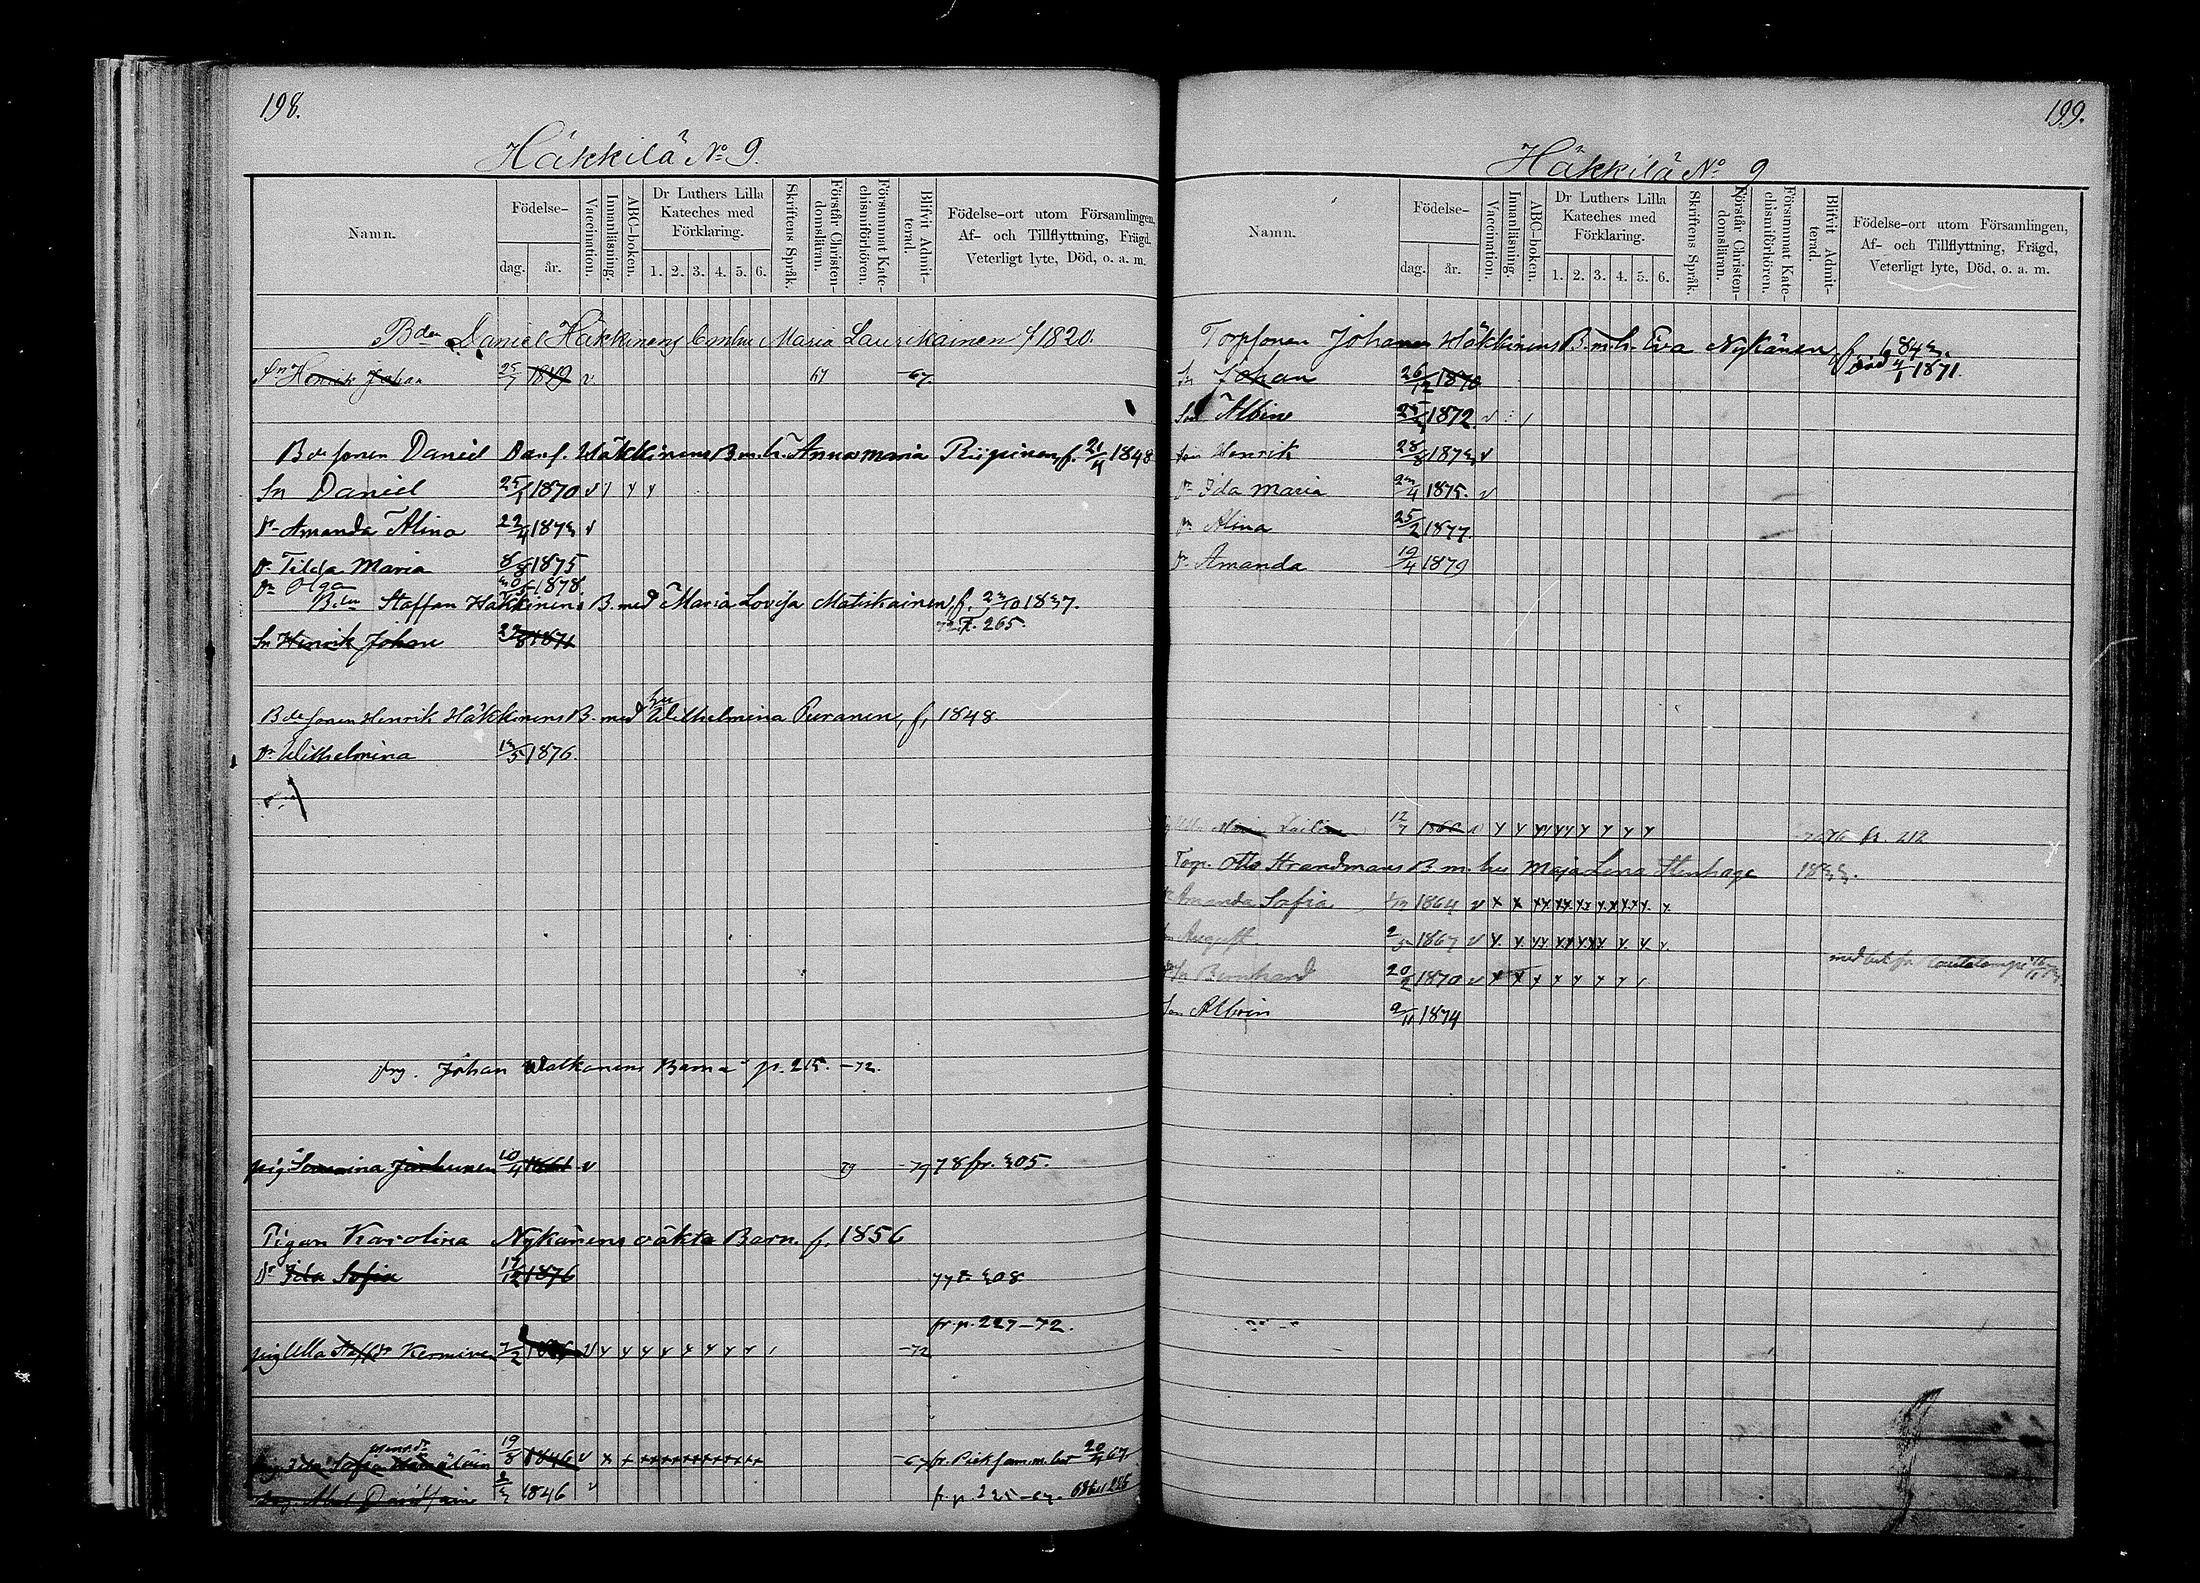 198.
Häkkilä No 9.
Namn.
Födelse-
dag.
år.
Vaccination.
Innanläsning.
ABC-boken.
Dr Luthers Lilla Kateches med Förklaring.
1. 2. 3. 4. 5. 6.
Skriftens Språk.
Förstår Christendomsläran.
Försummat Katechismiförhören.
Blifvit Admitterad.
Födelse-ort utom Församlingen,
Af- och Tillflyttning, Frägd,
Veterligt lyte, Död, o. a. m.
Bden Daniel Häkkinens Maria Laurikainen f 1820.
Sn Henrik Johan 25/7 1849 v 67 67.
Bdesonen Daniel Danf. Häkkinens B. m. h. Anna Maria Riipinen, f. 21/4 1848
Sn Daniel 25/1 1870 v
Dr Amanda Alina 22/4 1873 v
Dr Tilda Maria 8/8 1875
Dr Olga 1878.
Bden Staffan Häkkinens B. med Maria Lovisa Matiskainen, f. 23/10 1837.
72. t. 265.
Sn Henrik Johan 22/8 1871
Bdesonen Henrik Häkkinens B. med hu Wilhelmina Puranen, f. 1848
Dr Wilhelmina 13/5 1876.
Johan Walkonens Barn p. 215. -72.
pig Jänhunen 10/4 1861 v 79 -79 78 fr. 305.
Pigan Karolina Nykänens oäkta Barn. f. 1856
Dr Ida Sofia 17/12 1876 77 t. 308
fr. p. 227-72.
pig Ulla Staffdr -72
Ida Sofia 19/8 1846 v 67 fr. Pieks. m. bet 20/4 67.
Abel Davidsson 1846 v fr. p. 225-67.
199.
Häkkilä No 9
Namn.
Födelse-
dag.
år.
Vaccination.
Innanläsning.
ABC-boken.
Dr Luthers Lilla Kateches med Förklaring.
1. 2. 3. 4. 5. 6.
Skriftens Språk.
Förstår Christendomsläran.
Försummat Katechismiförhören.
Blifvit Admitterad.
Födelse-ort utom Församlingen,
Af- och Tillflyttning, Frägd,
Veterligt lyte, Död, o. a. m.
Torpsonen Johan Häkkinens B. m. h. Eva Nykänen f. 1843.
Sn Johan 26/12 1870 död 4/1 1871.
Sn Albin 1872 v
Sn Henrik 28/8 1873 v
Dr Ida Maria 23/4 1875. v
Dr Alina 25/2 1877.
Dr Amanda 19/4 1879
12/7 1860 v fr. 212
Torp. Otto Strandmans B. m. hu Maja Lena Stenhage 1833.
Dr Amanda Sofia 1864 v
Sn August 1867 v
Sn Bernhard 20/2 1870 v med bet fr
Sn Albin 9/11 1874